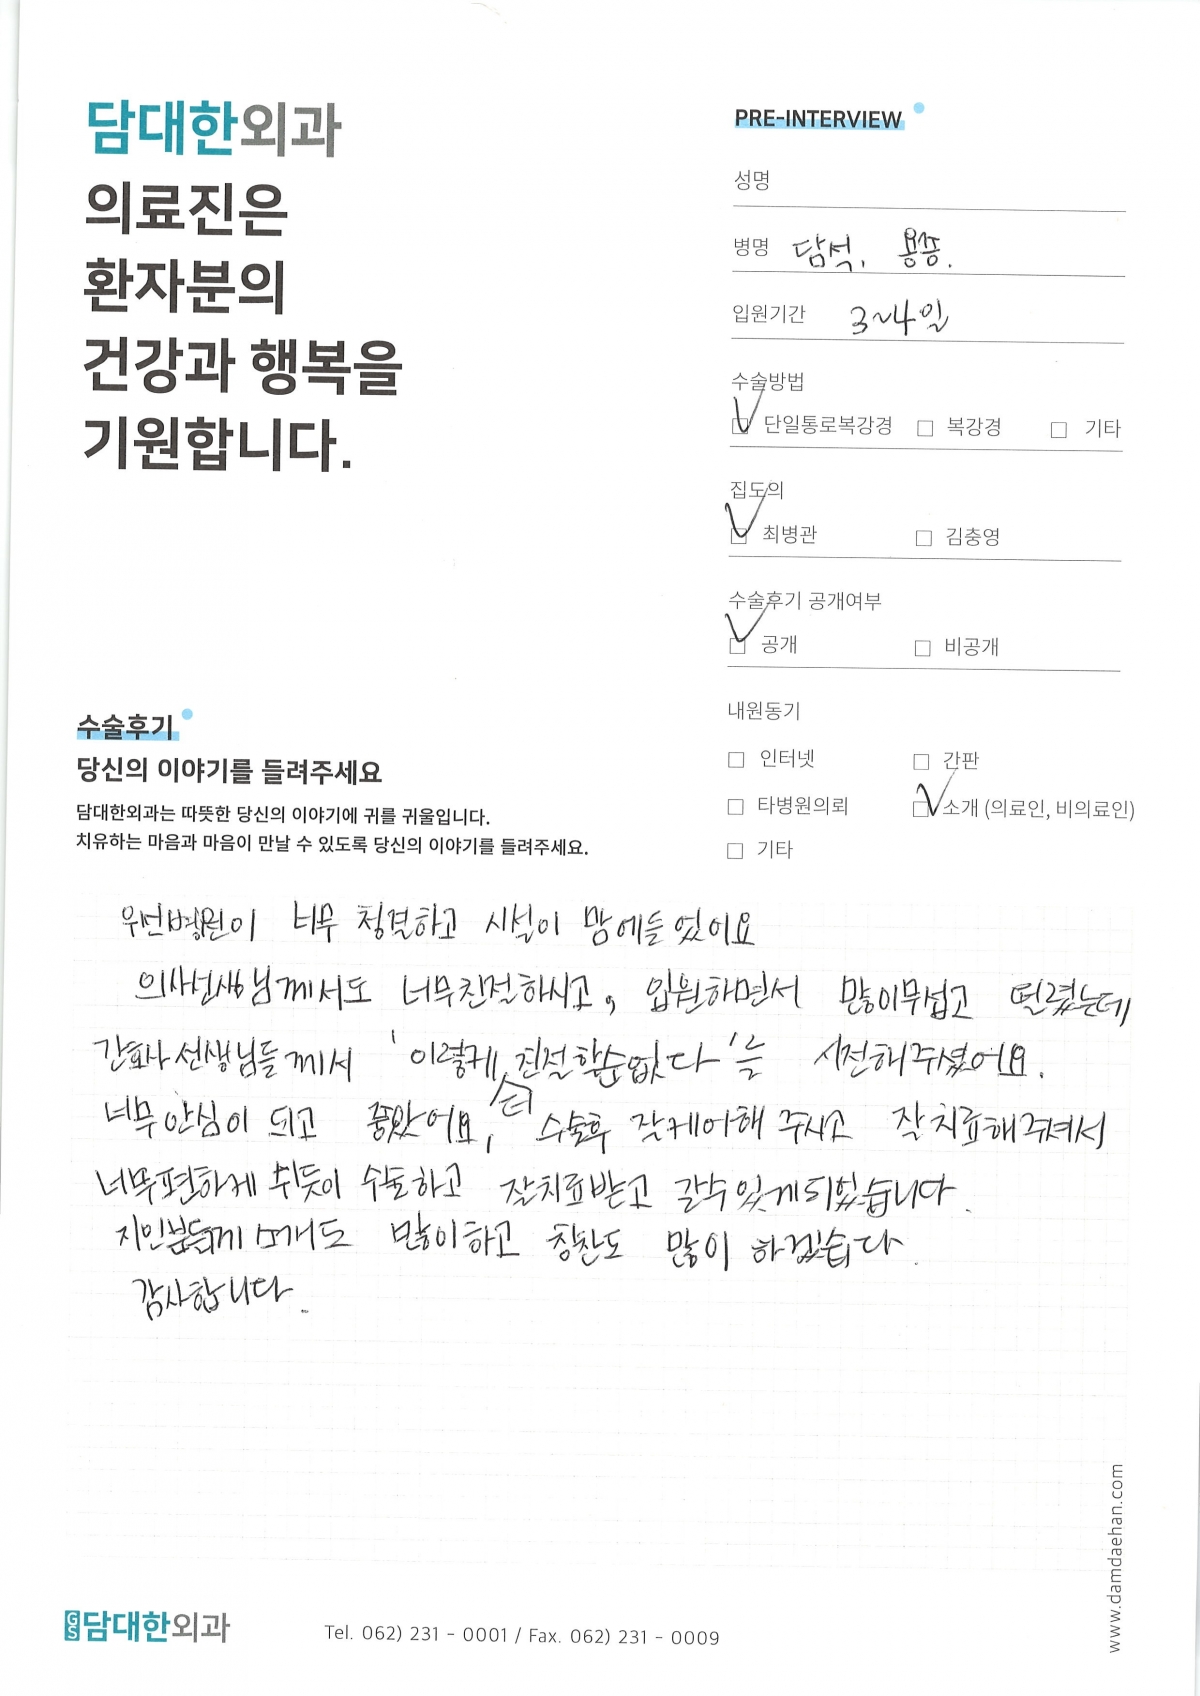 담대한외과
의료진은
환자분의
건강과 행복을
기원합니다.
PRE-INTERVIEW
성명
병명 담석, 용종.
입원기간 3~4일
수술방법
단일통로복강경 복강경 기타
집도의
최병관 김충영
수술후기 공개여부
공개 비공개
내원동기
인터넷 간판
타병원의뢰 소개 (의료인, 비의료인)
기타
수술후기
당신의 이야기를 들려주세요
담대한외과는 따뜻한 당신의 이야기에 귀를 귀울입니다.
치유하는 마음과 마음이 만날 수 있도록 당신의 이야기를 들려주세요.
우선병원이 너무 청결하고 시설이 맘에들었어요
의사선생님께서도 너무친절하시고, 입원하면서 많이무섭고 떨렸는데
간호사선생님들께서 '이렇게 더 친절할순없다'를 시전해주셨어요.
너무 안심이 되고 좋았어요, 수술후 잘케어해 주시고 잘치료해주셔서
너무편하게 쉬듯이 수술하고 잘치료받고 갈수있게되었습니다.
지인분들께 소개도 많이하고 칭찬도 많이 하겠습다.
감사합니다.
GS 담대한외과
Tel. 062) 231 - 0001 / Fax. 062) 231 - 0009
www.damdaehan.com